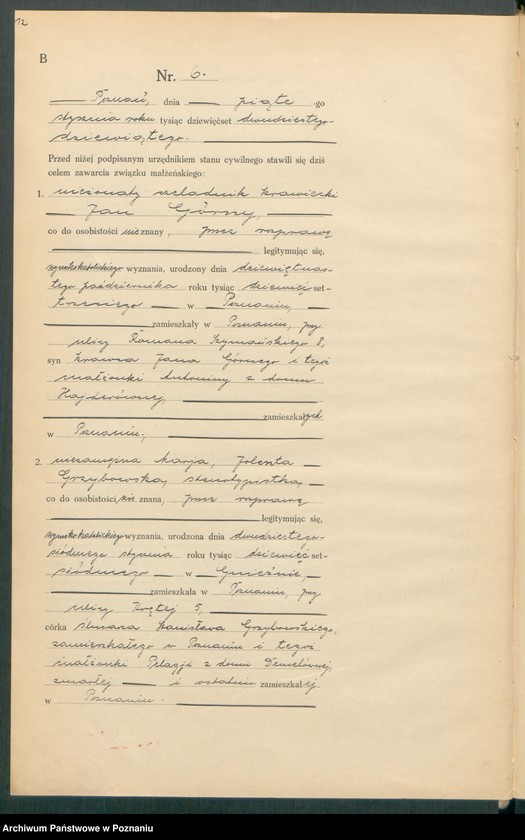 12
B
Nr. 6.
Poznań, dnia piąte -go
stycznia roku tysiąc dziewięćset dwudziestego-
dziewiątego.
Przed niżej podpisanym urzędnikiem stanu cywilnego stawili się dziś
celem zawarcia związku małżeńskiego:
1. nieżonaty czeladnik krawiecki
Jan Górny,
co do osobistości nieznany, przez rozprawę
legitymując się,
rzymskokatolickiego wyznania, urodzony dnia dziewiętnas-
tego października roku tysiąc dziewięćset-
trzeciego w Poznaniu,
zamieszkały w Poznaniu, przy
ulicy Romana Szymańskiego 8,
syn krawca Jana Górnego i tegoż
małżonki Antoniny z domu
zamieszkałych
w Poznaniu;
2. niezamężna Marja, Jolenta
Grzybowska, stenotypistka,
co do osobistości nie znana, przez rozprawę
legitymując się,
rzymskokatolickiego wyznania, urodzona dnia dwudziestego-
siódmego stycznia roku tysiąc dziewięćset-
siódmego w Gnieźnie,
zamieszkała w Poznaniu, przy
ulicy Krętej 5,
córka ślusarza Stanisława Grzybowskiego,
zamieszkałego w Poznaniu i tegoż
małżonki Pelagji z domu
zmarłej i ostatnio zamieszkałej
w Poznaniu.
Archiwum Państwowe w Poznaniu